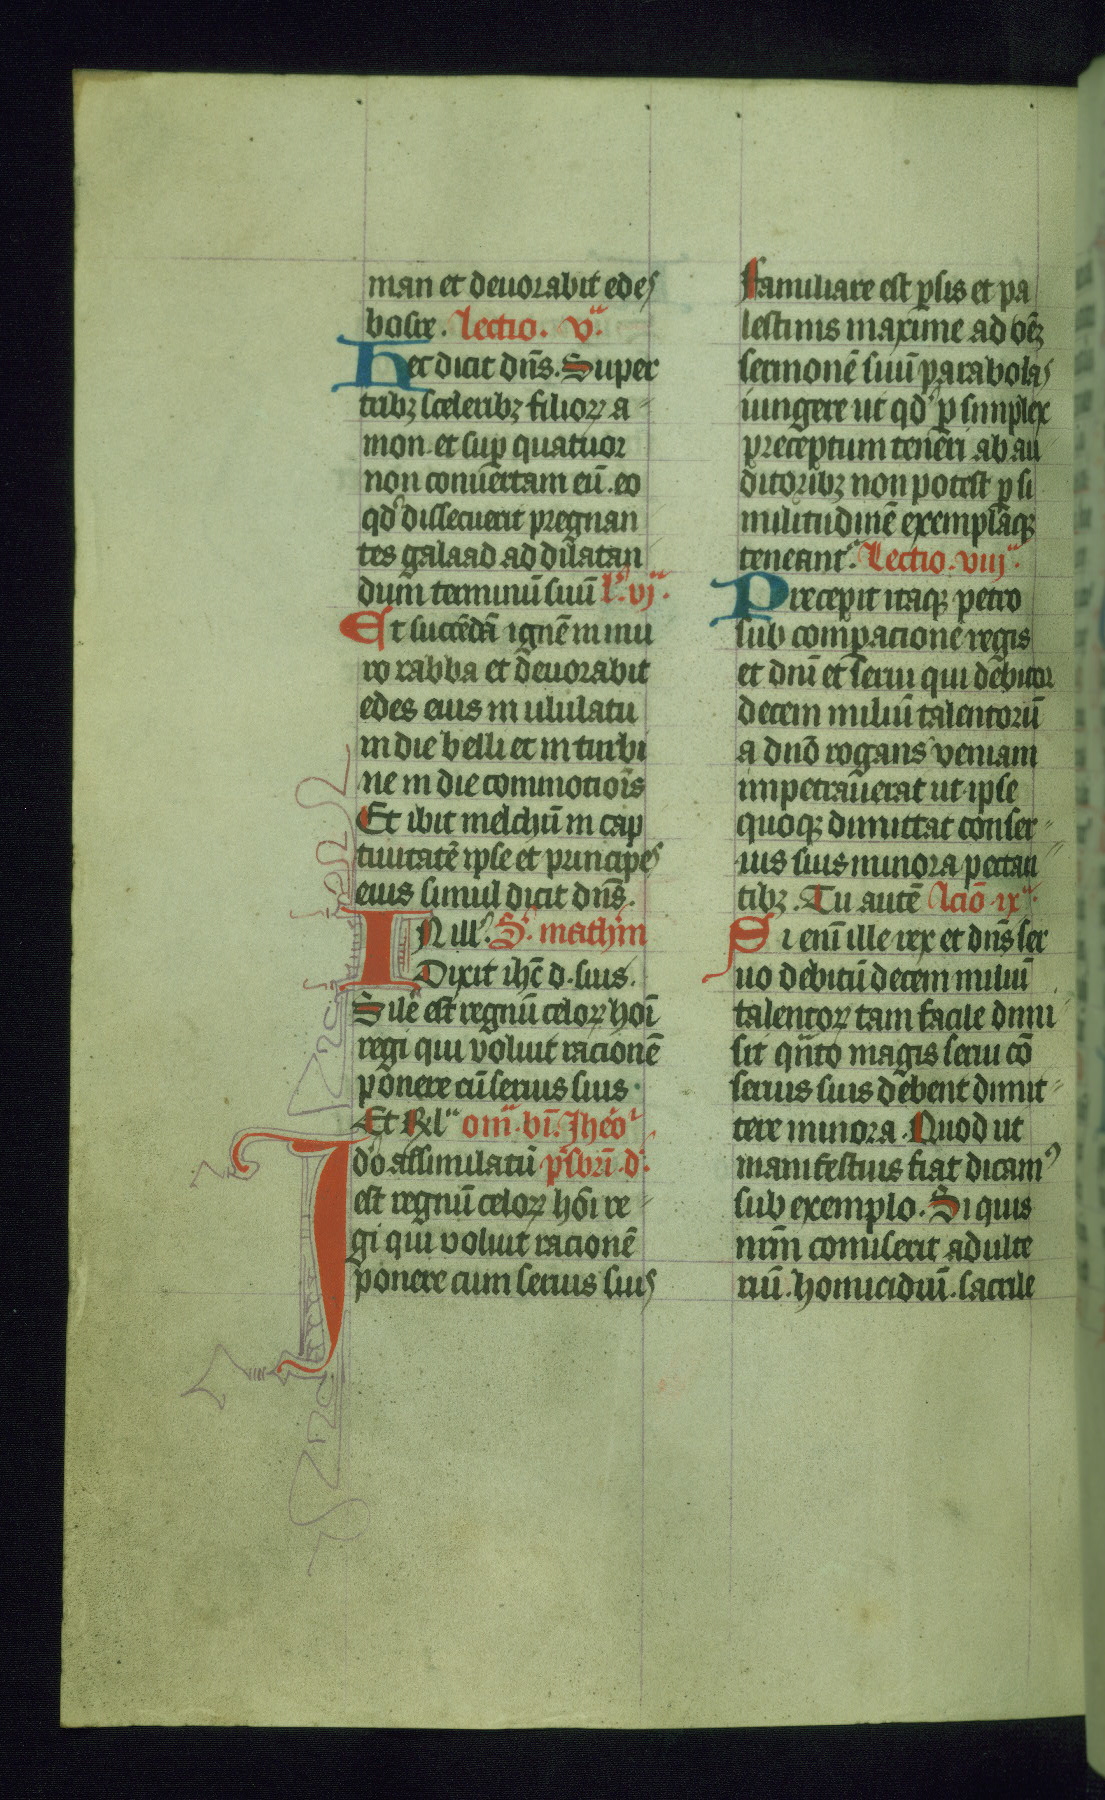 man et deuorabit edes
bosre. Lectio. vᵃ.
Hec dicit dn̄s. Super
tribꝫ sceleribꝫ filioꝝ a-
mon. et sup̄ quatuor
non conuertam eū. eo
qd' dissecuerit pregnan
tes galaad ad dilatan
dum terminū suū l'. vjᵃ.
Et succēdā ignē in mu
ro rabba et deuorabit
edes eius in ululatu
in die belli et in turbi
ne in die commotiōis
Et ibit melchū in cap
tiuitatē ipse et principes
eius simul dicit dn̄s.
IN ill'. S. mathm
Dixit ihc̄ d. suis.
Sile ē est regnū celoꝝ hoī
regi qui voluit racionē
ponere cū seruis suis.
Et Rl' om̄. bī. Jheo'
Jdo assimulatū p̄sbrī. d'.
est regnū celoꝝ hōi re-
gi qui voluit racionē
ponere cum seruis suis
Familiare est ꝑsis et pa
lestinis maxime ad oēꝫ
sermonē suū parabolas
iungere ut qd' ꝑ simplex
preceptum teneri ab au
ditoribꝫ non potest ꝑ si
militudinē exemplaqꝫ
teneant'. Lectio. viijᵃ.
Precepit itaqꝫ petro
sub comparacione regis
et dnī et serui qui debitor
decem miliū talentorū
a dnō rogans veniam
impetrauerat ut ipse
quoqꝫ dimittat conser-
uis suis minora peccan-
tibꝫ. Tu autē lcīo ixᵃ.
Si eni ille rex et dn̄s ser
uo debitū decem miliū
talentoꝝ tam facile dimi-
sit qn̄to magis serui cō
seruis suis debent dimit-
tere minora. Quod ut
manifestius fiat dicam'
sub exemplo. Si quis
nrm̄ comiserit adulte
riū. homicidiū. sacrile